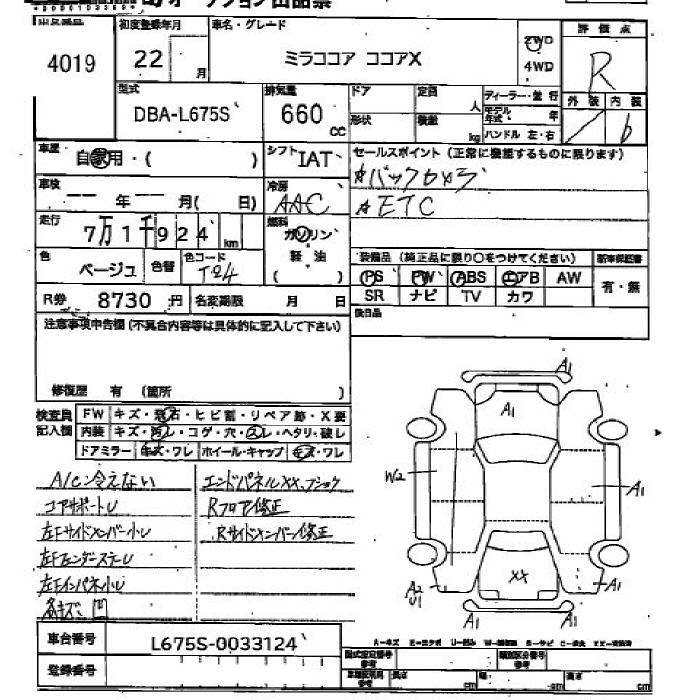 オークション出品票
出品番号 4019
初度登録年月 22 月
車名・グレード ミラココア ココアX
2WD
4WD
評価点 R
外装 内装 6
型式 DBA-L675S
排気量 660 cc
ドア 定員 人
形状 積載 kg
ディーラー・並行
モデル年式 年
ハンドル 左・右
車歴 自家用・( )
シフト IAT
セールスポイント (正常に機能するものに限ります)
☆バックカメラ
☆ETC
車検 年 月( 日)
冷房 AAC
走行 7万1千924 km
燃料 ガソリン
軽油
( )
色 ベージュ 色替 色コード T24
装備品 (純正品に限り○をつけてください) 新車保証書
PS PW ABS エアB AW 有・無
SR ナビ TV カワ
R券 8730 円 名変期限 月 日
後日品
注意事項申告欄(不具合内容等は具体的に記入して下さい)
修復歴 有 (箇所 )
検査員 FW キズ・飛石・ヒビ割・リペア跡・X要
記入欄 内装 キズ・汚レ・コゲ・穴・スレ・ヘタリ・破レ
ドアミラー キズ・ワレ ホイール・キャップ キズ・ワレ
A/C冷えない エンドパネルXX、プッシュ
コアサポートU Rフロア修正
左Fサイドメンバー小U Rサイドメンバー修正
左FフェンダーステーU
左Fインパネ小U
各キズ 凹
A1
A1
W2
A1
XX
A2
U1
A1
A1
A1
車台番号 L675S-0033124
登録番号
型式指定番号 参考
類別区分番号 参考
長さ cm 幅 cm 高さ cm